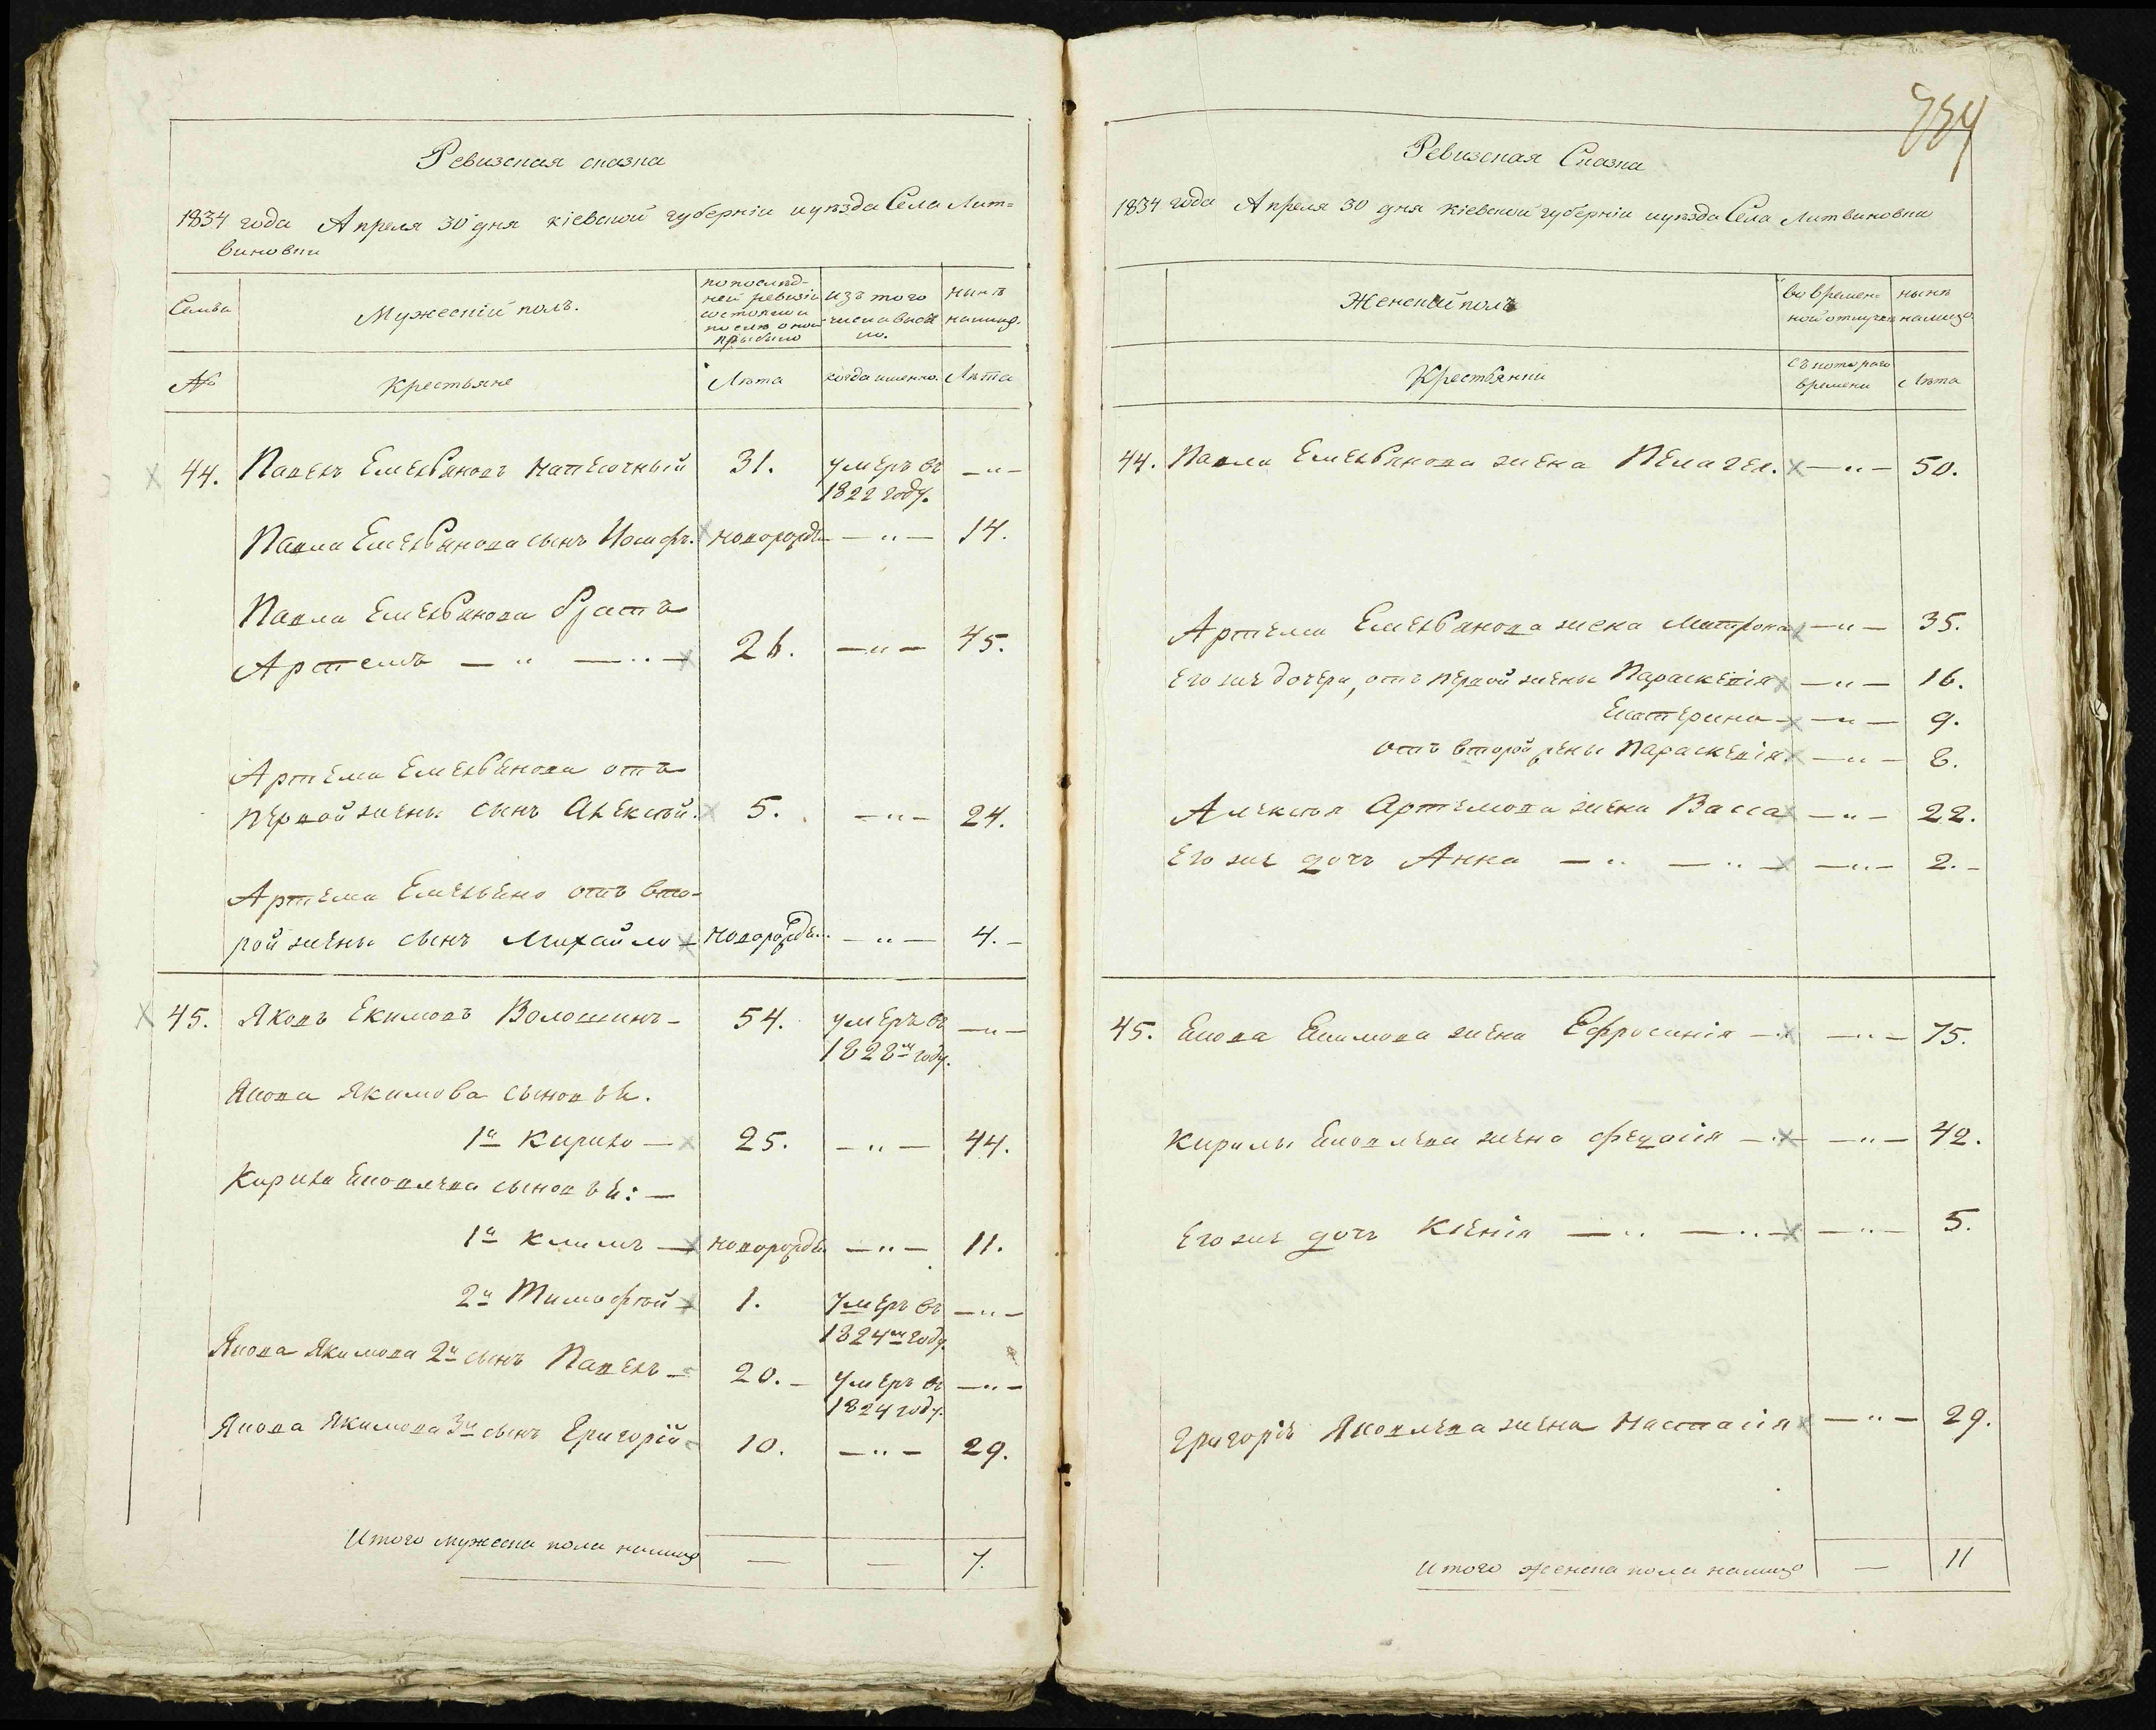 Ревизская сказка
1834 года Апреля 30 дня кіевской губерніи и уѣзда Села Лит=
виновки
Семьи
Мужескій полъ.
по послѣд-
ней ревизіи
состояло и
послѣ оной
прибыло
изъ того
числа выбы
ло.
нынѣ
налицо.
№
Крестьяне
Лѣта
когда именно.
Лѣта
44. Павелъ Емельяновъ 31. умеръ въ —"—
1822 году.
Павла Емельянова сынъ Иосифъ. новорожде —"— 14.
Павла Емельянова братъ
Артемъ — " — " — 26. —"— 45.
Артема Емельянова отъ
первой жены сынъ Алексѣй. 5. —"— 24.
Артема Емельяно отъ вто-
рой жены сынъ Михайло новорожде.. —"— 4.-
45. Яковъ Екимовъ Волошинъ- 54. умеръ въ —"—
1828м году.
Якова Якимова сыновьи.
1й Кирило — 25. —"— 44.
Кирила Яковлева сыновьи: —
1й Климъ — новорожде —"— 11.
2й Тимофѣй 1. умеръ въ —"—
1824м году.
Якова Якимова 2й сынъ Павелъ - 20.- умеръ въ —"—
1824 году.
Якова Якимова 3й сынъ Григорій 10. —"— 29.
Итого мужеска пола налицо — — 7.
334
Ревизская Сказка
1834 года Апреля 30 дня кіевской губерніи и уѣзда Села Литвиновки
Женскій полъ
во времен-
ной отлучкѣ
нынѣ
налицо
Крестьянки
съ котораго
времени
Лѣта
44. Павла Емельянова жена Пелагея. —"— 50.
Артема Емельянова жена Матрона —"— 35.
Его же дочери, отъ первой жены Параскевія —"— 16.
Екатерина —"— 9.
отъ второй жены Параскевія —"— 8.
Алексѣя Артемова жена Васса —"— 22.
Его же дочь Анна — " — " — —"— 2.-
45. Якова Екимова жена Ефросинія — —"— 75.
Кирилы Яковлева жена Федосія — —"— 42.
Его же дочь Ксенія — " — " — —"— 5.
Григорія Яковлева жена Настасія —"— 29.
Итого женска пола налицо — 11